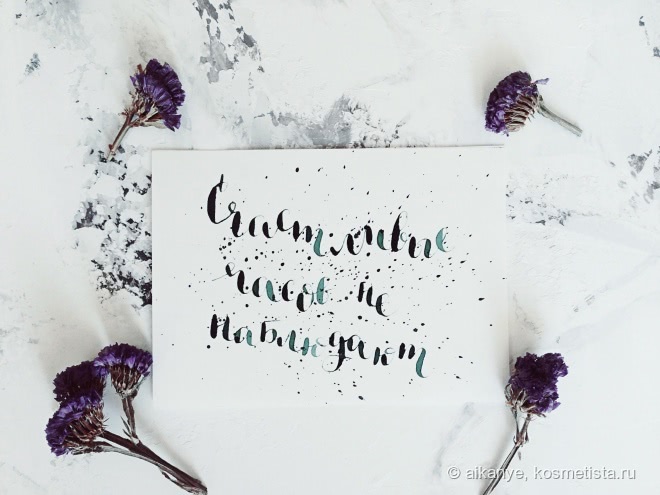 Счастливые
часов не
наблюдают
© aikanye, kosmetista.ru